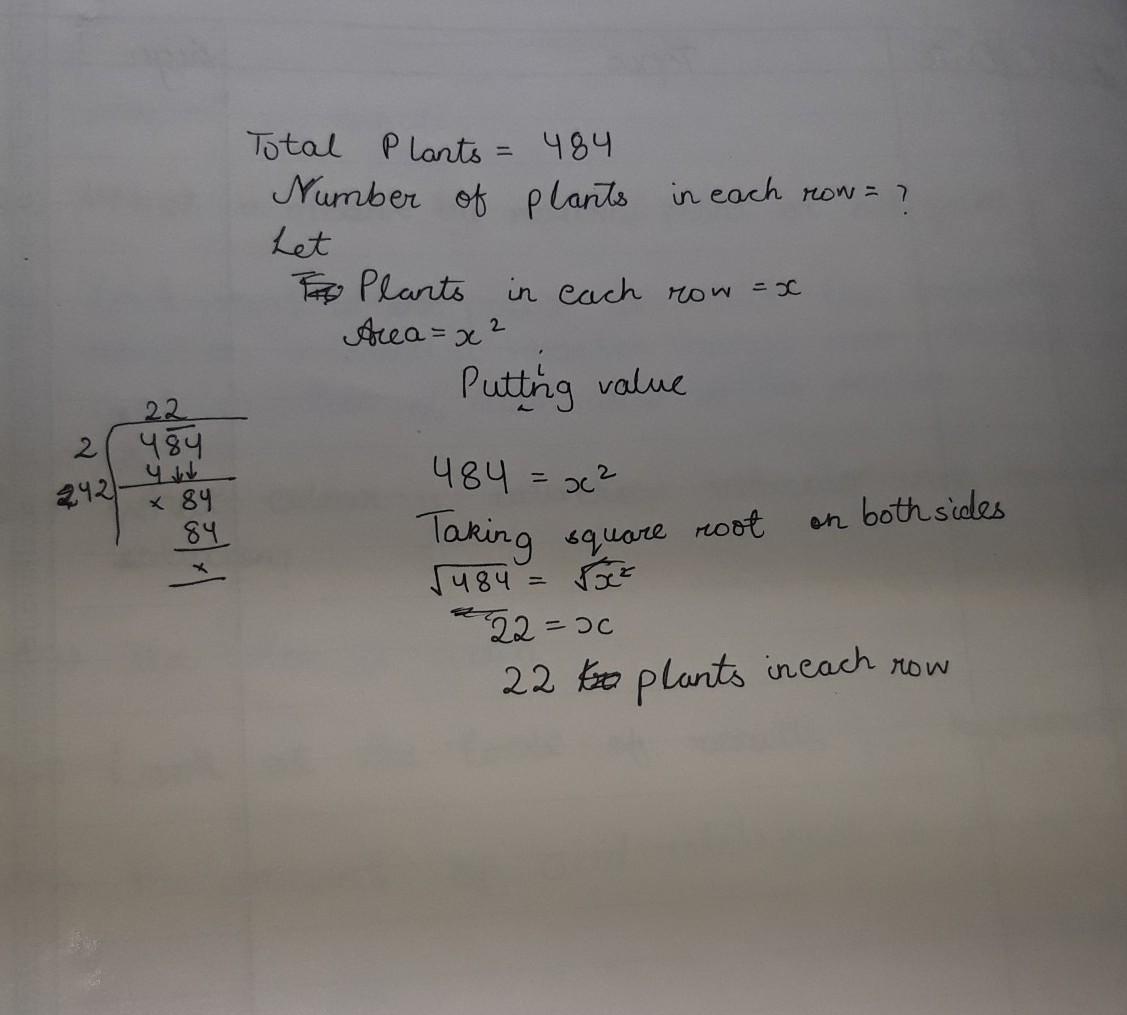 Total Plants = 484
Number of plants in each row = ?
Let
Plants in each row = x
Area = x²
Putting value
22
2 484
4↓↓
242 × 84
84
×
484 = x²
Taking square root on both sides
√484 = √x²
22 = x
22 plants in each row